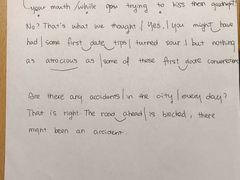 your mouth / while you trying to kiss them goodnight?
No? That's what we thought / Yes, / you might have
had / some first date tips / turned sour / but nothing
as atrocious as / some of these first date conversion

Are there any accidents / in the city / every day?
That is right. The road ahead / is blocked, there
might been an accident.